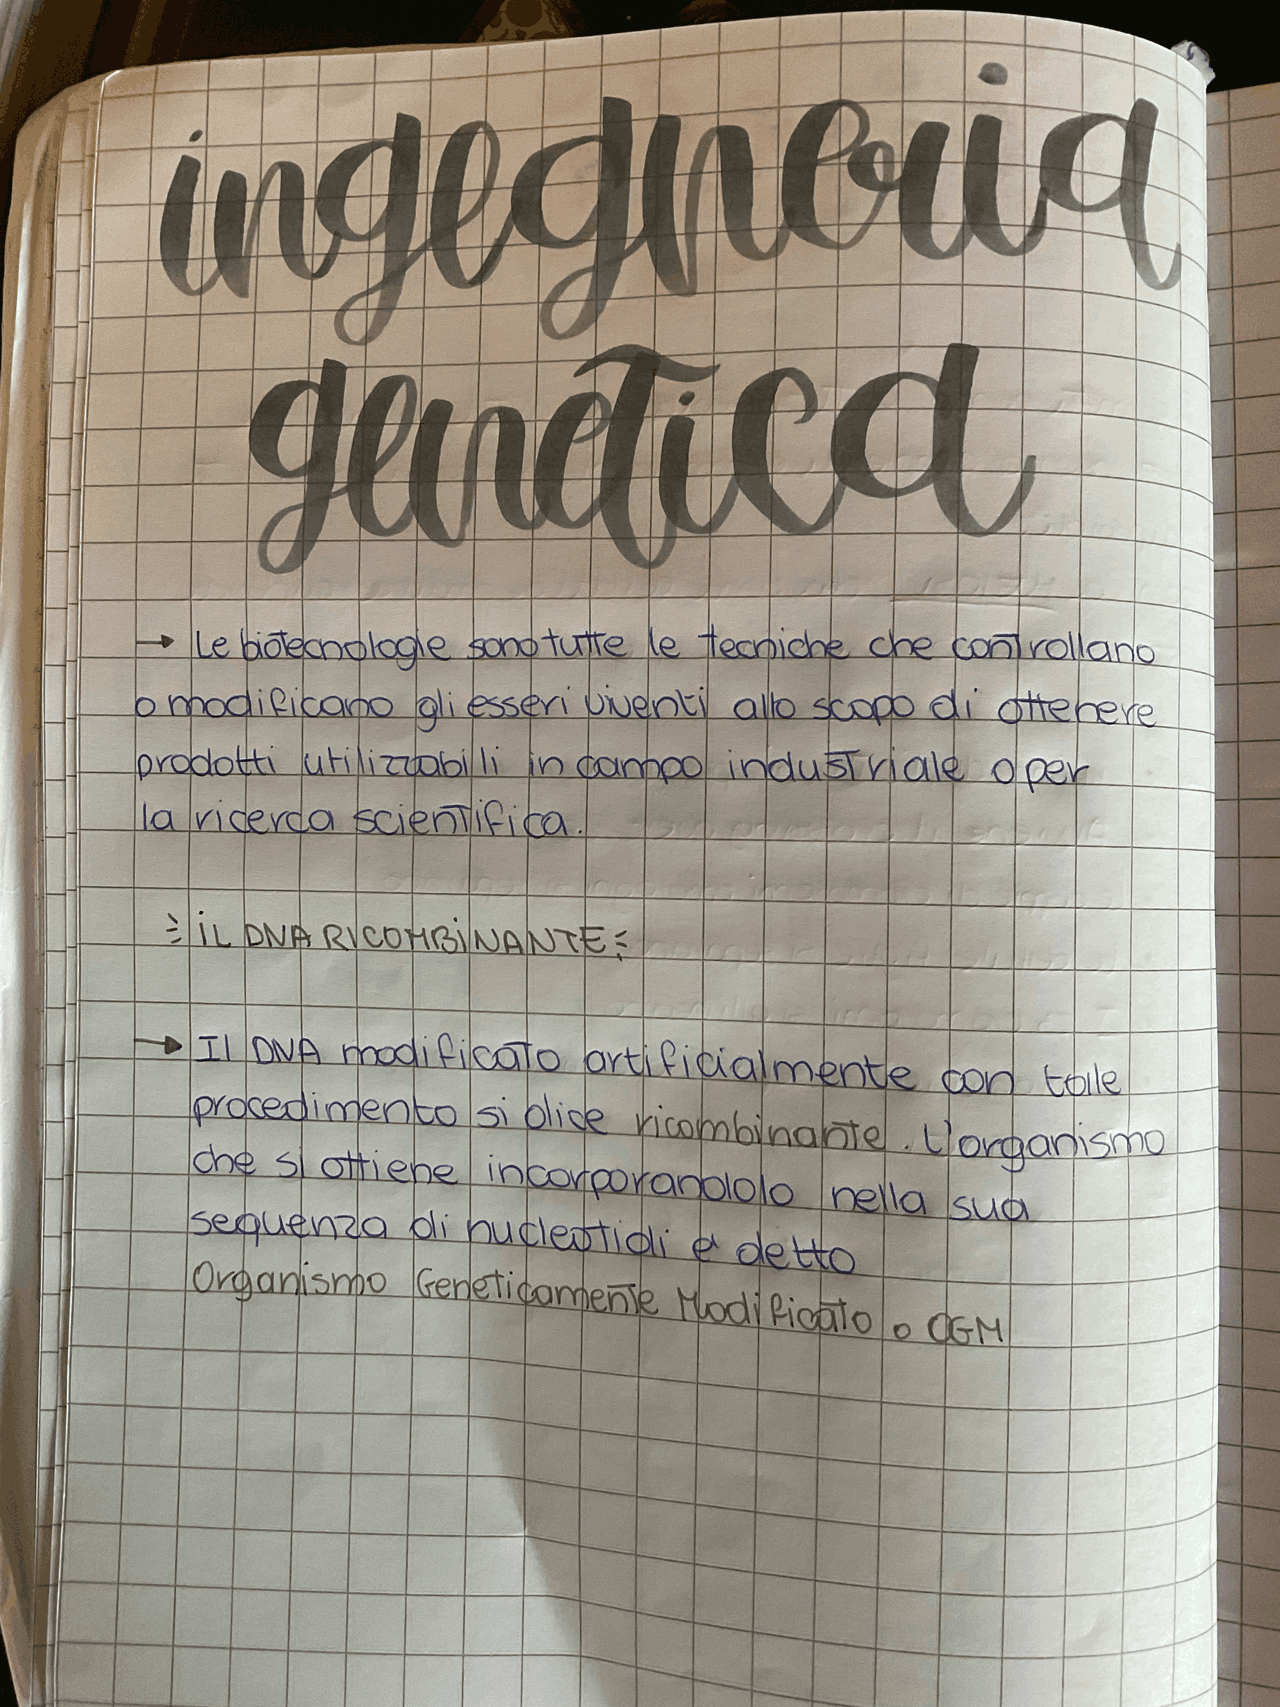 ingegneria
genetica
→ Le biotecnologie sono tutte le tecniche che controllano
o modificano gli esseri viventi allo scopo di ottenere
prodotti utilizzabili in campo industriale o per
la ricerca scientifica.
IL DNA RICOMBINANTE
→ Il DNA modificato artificialmente con tale
procedimento si dice ricombinante. L'organismo
che si ottiene incorporandolo nella sua
sequenza di nucleotidi è detto
Organismo Geneticamente Modificato o OGM